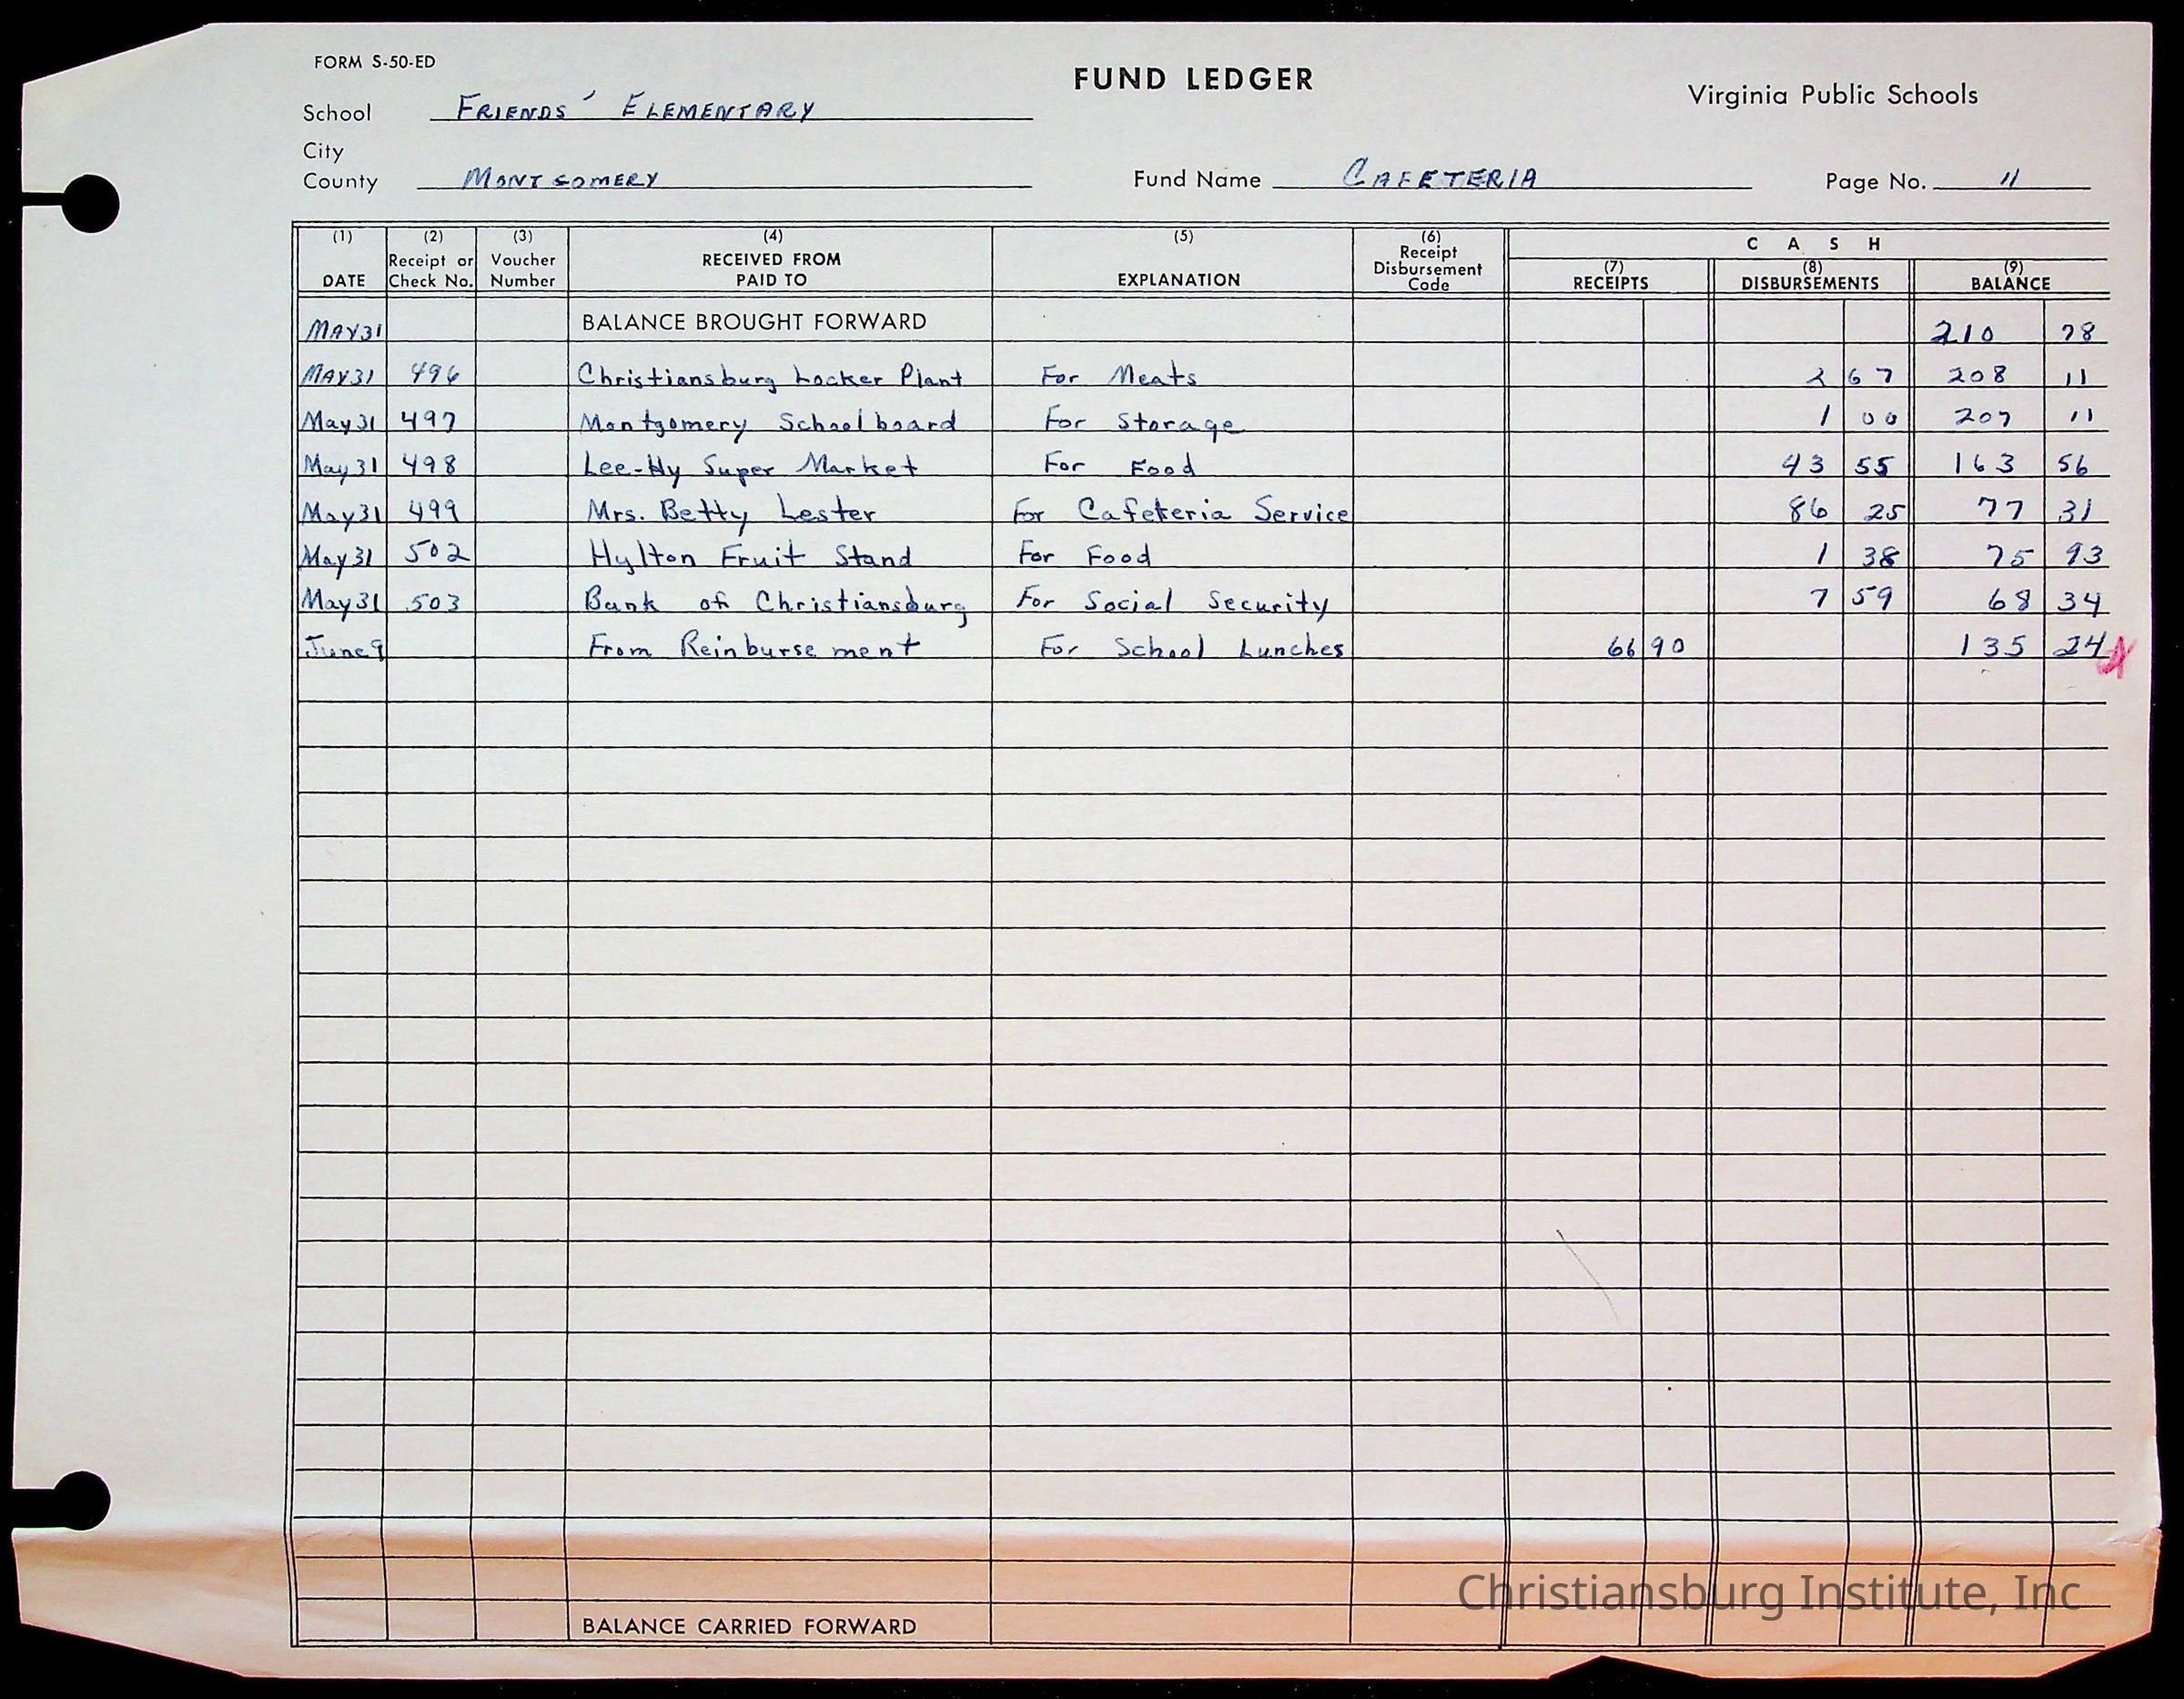 FORM S-50-ED
FUND LEDGER
Virginia Public Schools
School FRIENDS' ELEMENTARY
City
County MONTGOMERY Fund Name CAFETERIA Page No. 11
(1) (2) (3) (4) (5) (6) C A S H
DATE Receipt or Check No. Voucher Number RECEIVED FROM PAID TO EXPLANATION Receipt Disbursement Code (7) RECEIPTS (8) DISBURSEMENTS (9) BALANCE
MAY 31 BALANCE BROUGHT FORWARD 210 78
MAY 31 496 Christiansburg Locker Plant For Meats 2 67 208 11
May 31 497 Montgomery School board For Storage 1 00 207 11
May 31 498 Lee-Hy Super Market For Food 43 55 163 56
May 31 499 Mrs. Betty Lester For Cafeteria Service 86 25 77 31
May 31 502 Hylton Fruit Stand For Food 1 38 75 93
May 31 503 Bank of Christiansburg For Social Security 7 59 68 34
June 9 From Reinbursement For School Lunches 66 90 135 24
BALANCE CARRIED FORWARD
Christiansburg Institute, Inc